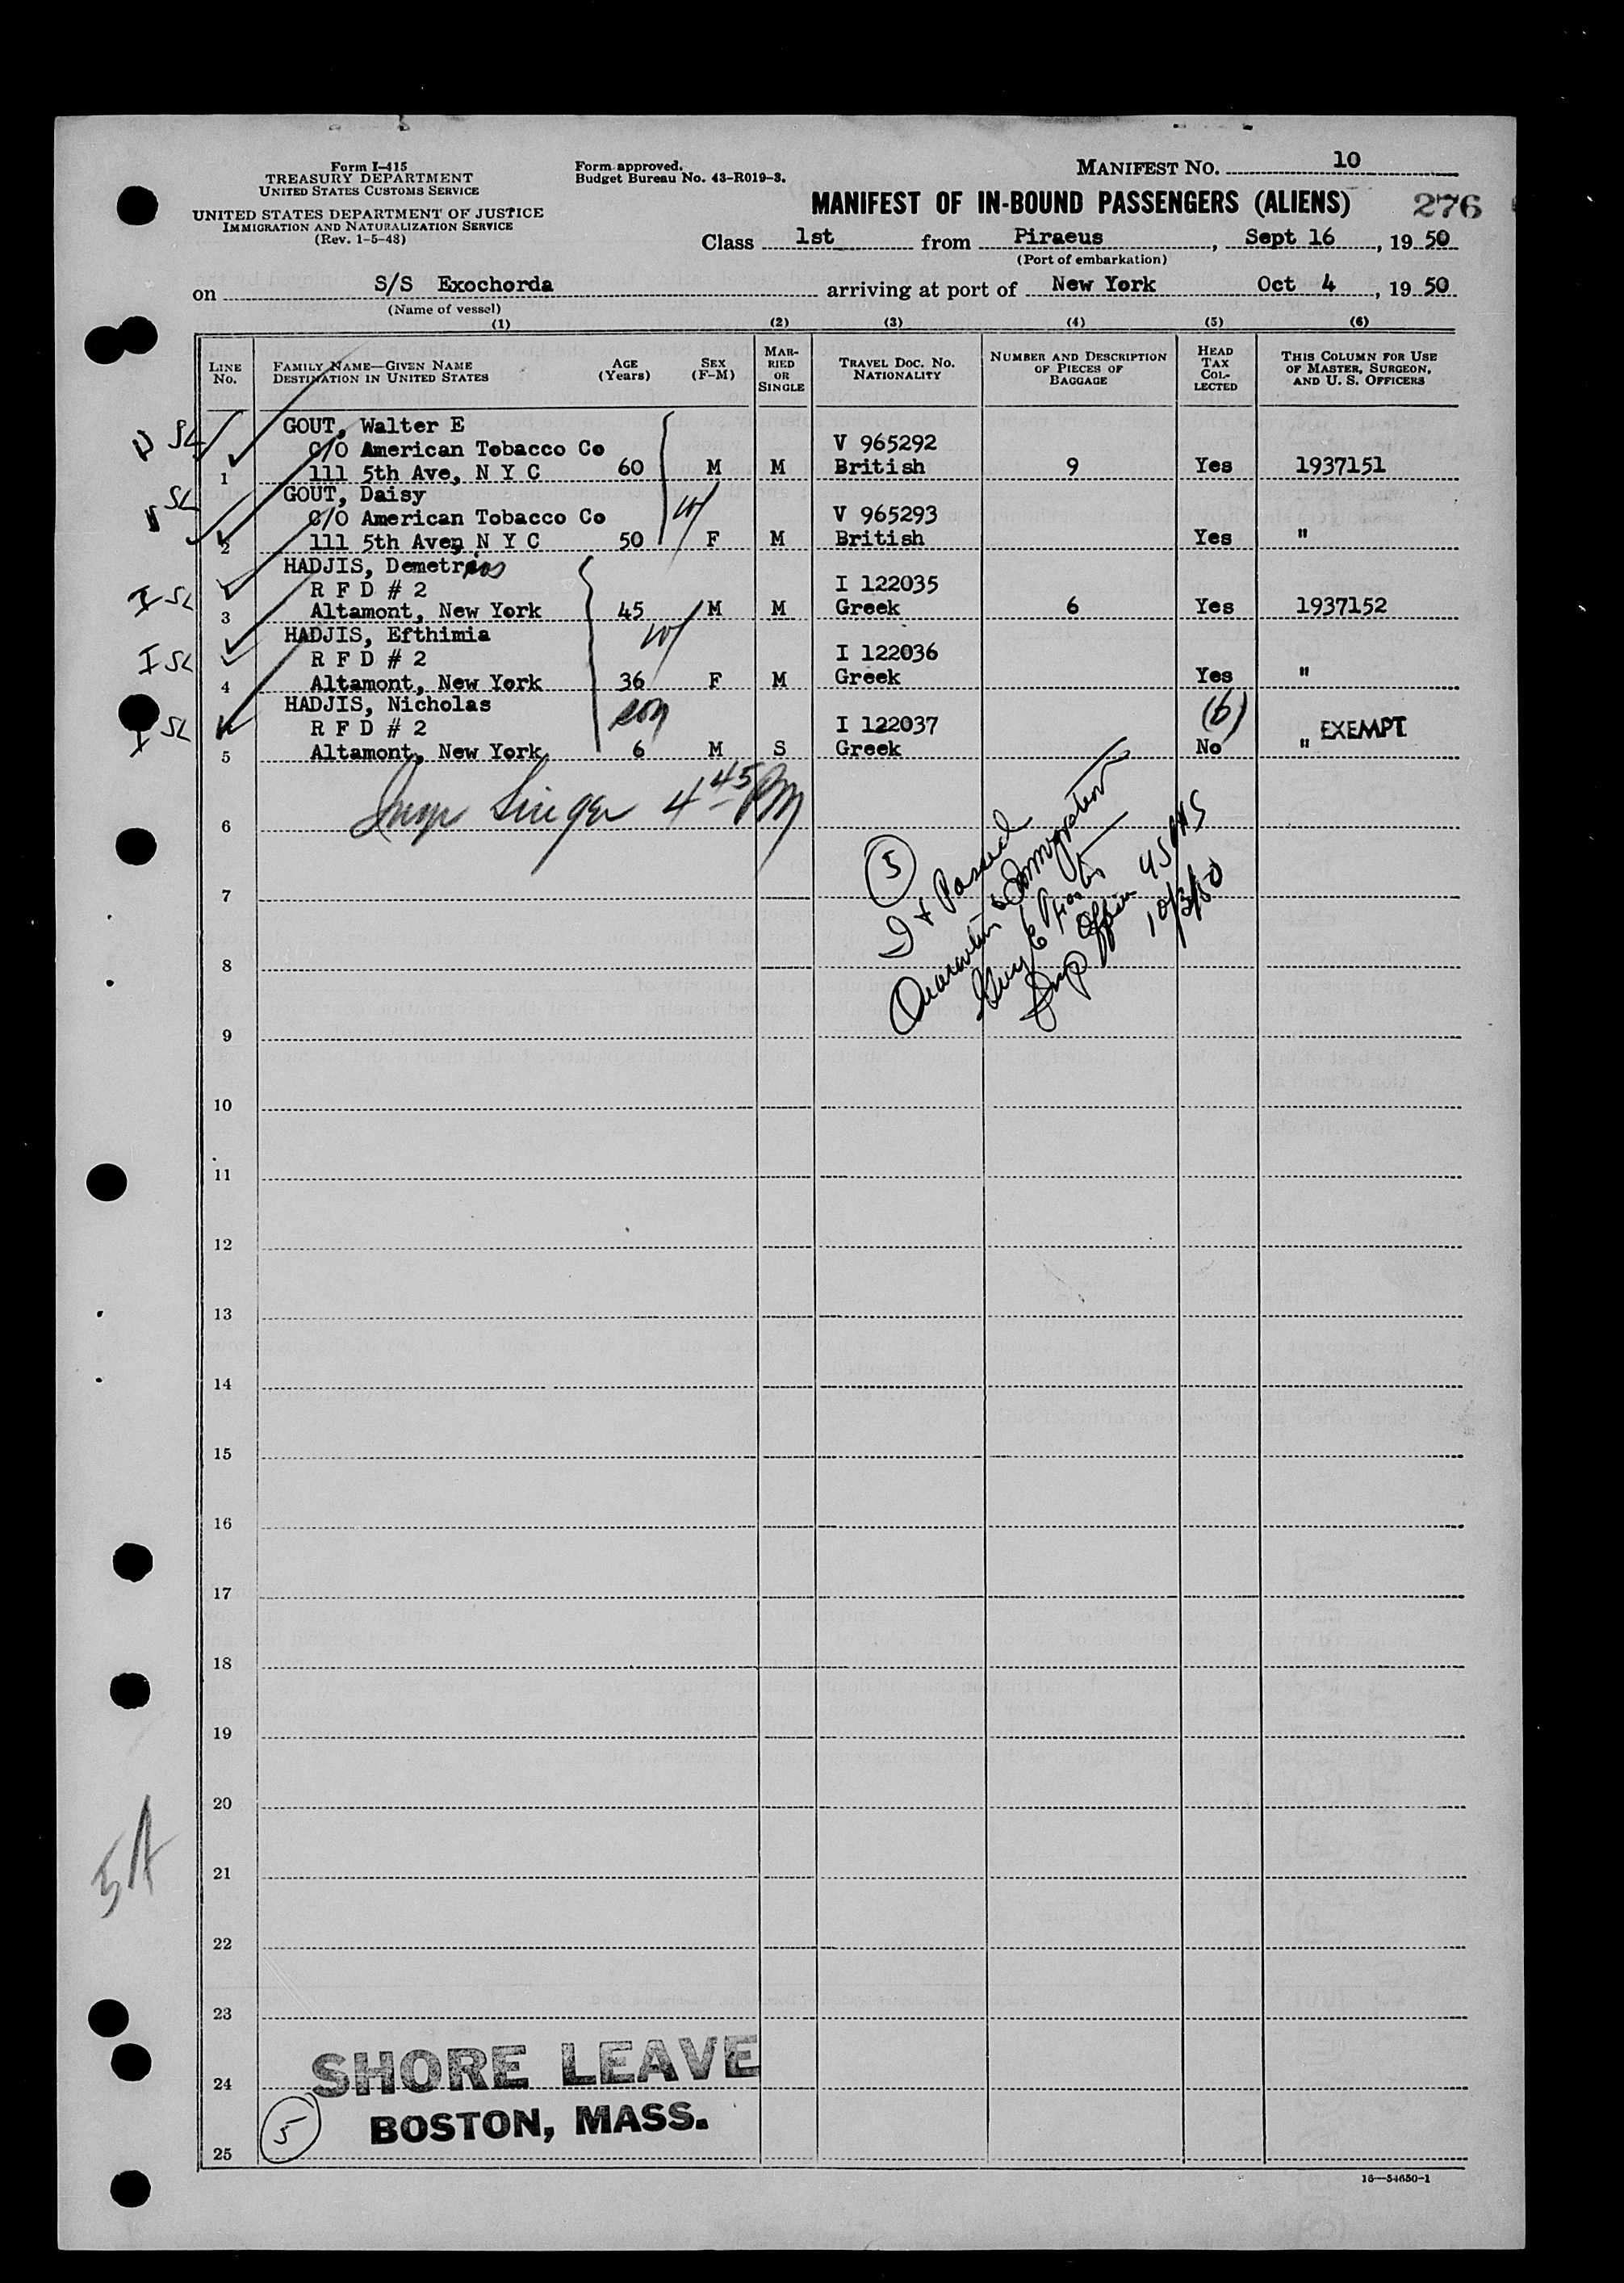 Form I-415
TREASURY DEPARTMENT
UNITED STATES CUSTOMS SERVICE
UNITED STATES DEPARTMENT OF JUSTICE
IMMIGRATION AND NATURALIZATION SERVICE
(Rev. 1-5-48)
Form approved.
Budget Bureau No. 43-R019-3.
MANIFEST NO. 10
MANIFEST OF IN-BOUND PASSENGERS (ALIENS) 276
Class 1st from Piraeus, Sept 16, 1950
(Port of embarkation)
on S/S Exochorda arriving at port of New York Oct 4, 1950
(Name of vessel)
(1) (2) (3) (4) (5) (6)
LINE No.
FAMILY NAME—GIVEN NAME
DESTINATION IN UNITED STATES
AGE (Years)
SEX (F-M)
MARRIED OR SINGLE
TRAVEL DOC. NO. NATIONALITY
NUMBER AND DESCRIPTION OF PIECES OF BAGGAGE
HEAD TAX COLLECTED
THIS COLUMN FOR USE OF MASTER, SURGEON, AND U. S. OFFICERS
SL GOUT, Walter E
C/O American Tobacco Co V 965292
1 111 5th Ave, N Y C 60 M M British 9 Yes 1937151
SL GOUT, Daisy
C/O American Tobacco Co W V 965293
2 111 5th Ave, N Y C 50 F M British Yes "
HADJIS, Demetrios
I SL R F D # 2 I 122035
3 Altamont, New York 45 M M Greek 6 Yes 1937152
HADJIS, Efthimia W
I SL R F D # 2 I 122036
4 Altamont, New York 36 F M Greek Yes "
HADJIS, Nicholas son (6)
I SL R F D # 2 I 122037 EXEMPT
5 Altamont, New York 6 M S Greek No "
Insp Singer 4 45 PM
6
5
I & Passed
Quarantine & Immigration
Insp Officer USPHS
10/3/50
7
8
9
10
11
12
13
14
15
16
17
18
19
20
5A
21
22
23
SHORE LEAVE
24
5 BOSTON, MASS.
25
16—54650-1